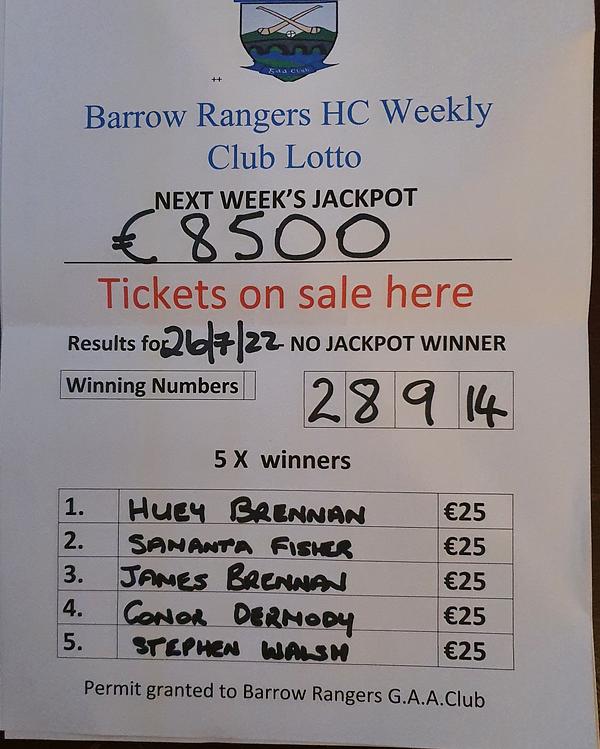 G.a.a Club
++
Barrow Rangers HC Weekly
Club Lotto
NEXT WEEK'S JACKPOT
€8500
Tickets on sale here
Results for 26/7/22 NO JACKPOT WINNER
Winning Numbers 2 8 9 14
5 X winners
1. HUEY BRENNAN €25
2. SAMANTA FISHER €25
3. JAMES BRENNAN €25
4. CONOR DERMODY €25
5. STEPHEN WALSH €25
Permit granted to Barrow Rangers G.A.A.Club